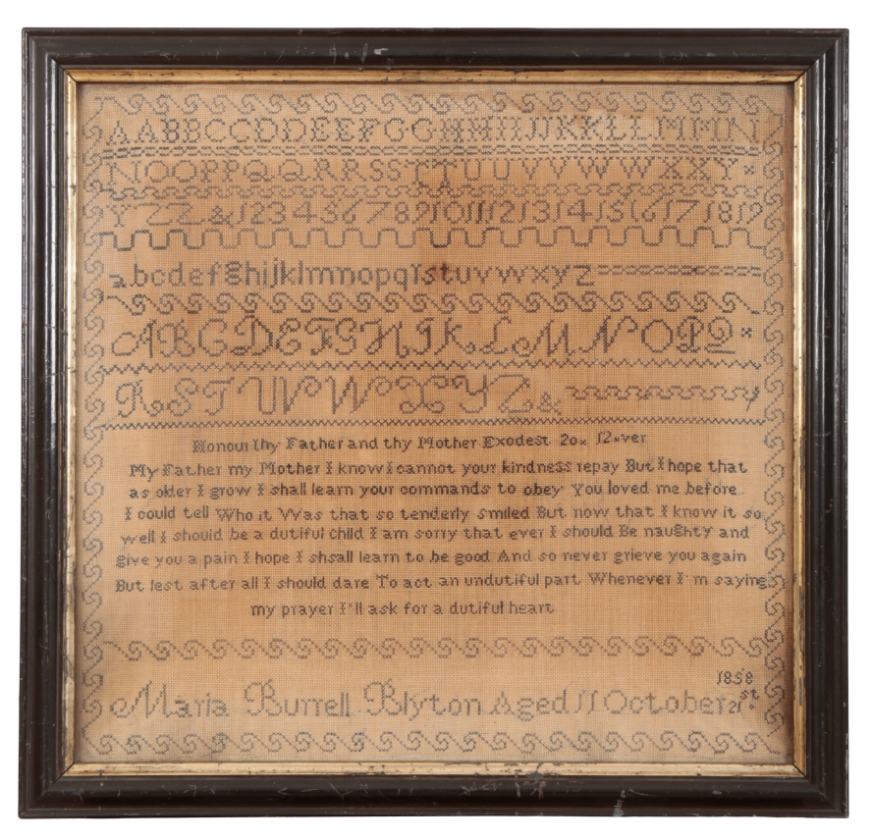 AABBCCDDEEFGGHHIIJJKKLLMMN
NOOPPQQRRSSTTUUVVWWXXY
YZZ&12345678910111213141516171819
abcdefghijklmnopqrstuvwxyz
ABCDEFGHIKLMNOPQ
RSTUVWXYZ&
Honour thy Father and thy Mother Exodest 20 12 ver
My Father my Mother I know I cannot your kindness repay But I hope that
as older I grow I shall learn your commands to obey You loved me before
I could tell Who it Was that so tenderly smiled But now that I know it so
well I should be a dutiful child I am sorry that ever I should Be naughty and
give you a pain I hope I shsall learn to be good And so never grieve you again
But lest after all I should dare To act an undutiful part Whenever I'm saying
my prayer I'll ask for a dutiful heart
1858
Maria Burrell Blyton Aged 11 October 21st